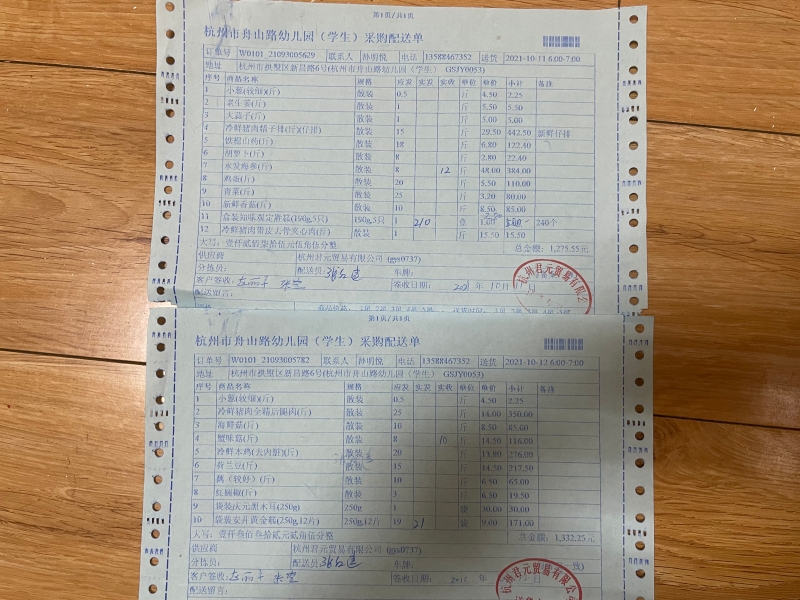 第1页/共1页
杭州市舟山路幼儿园（学生）采购配送单
订单号 W0101_21093005629 联系人 孙明悦 电话 13588467352 送货 2021-10-11 6:00-7:00
地址 杭州市拱墅区新昌路6号(杭州市舟山路幼儿园（学生） GSJY0053)
序号 商品名称 规格 应发 实发 实收 单位 单价 小计 备注
1 小葱(较细)(斤) 散装 0.5 斤 4.50 2.25
2 老生姜(斤) 散装 1 斤 5.50 5.50
3 大蒜子(斤) 散装 1 斤 5.00 5.00
4 冷鲜猪肉精子排(斤)(仔排) 散装 15 斤 29.50 442.50 新鲜仔排
5 铁棍山药(斤) 散装 18 斤 6.80 122.40
6 胡萝卜(斤) 散装 8 斤 2.80 22.40
7 水发海参(斤) 散装 8 12 斤 48.00 384.00
8 鸡蛋(斤) 散装 20 斤 5.50 110.00
9 青菜(斤) 散装 25 斤 3.20 80.00
10 新鲜香菇(斤) 散装 10 斤 8.50 85.00
11 盒装知味观定胜糕(190g,5只) 190g,5只 1 240个
12 冷鲜猪肉带皮去骨夹心肉(斤) 散装 1 斤 15.50 15.50
大写：壹仟贰佰柒拾伍元伍角伍分整 总金额：1,275.55元
供应商 杭州君元贸易有限公司 (gys0737)
分拣员： 配送员： 车牌：
客户签收： 签收日期： 2021 年 10 月
配送留言：
杭州君元贸易有限公
第1页/共1页
杭州市舟山路幼儿园（学生）采购配送单
订单号 W0101_21093005782 联系人 孙明悦 电话 13588467352 送货 2021-10-12 6:00-7:00
地址 杭州市拱墅区新昌路6号(杭州市舟山路幼儿园（学生） GSJY0053)
序号 商品名称 规格 应发 实发 实收 单位 单价 小计 备注
1 小葱(较细)(斤) 散装 0.5 斤 4.50 2.25
2 冷鲜猪肉全精后腿肉(斤) 散装 25 斤 14.00 350.00
3 海鲜菇(斤) 散装 10 斤 8.50 85.00
4 蟹味菇(斤) 散装 8 10 斤 14.50 116.00
5 冷鲜本鸡(去内脏)(斤) 散装 20 斤 13.80 276.00
6 荷兰豆(斤) 散装 15 斤 14.50 217.50
7 藕（较好）(斤) 散装 10 斤 6.50 65.00
8 红圆椒(斤) 散装 3 斤 6.50 19.50
9 袋装庆元黑木耳(250g) 250g 1 袋 30.00 30.00
10 袋装安井黄金糕(250g,12片) 250g,12片 19 21 袋 9.00 171.00
大写：壹仟叁佰叁拾贰元贰角伍分整 总金额：1,332.25元
供应商 杭州君元贸易有限公司 (gys0737)
分拣员： 配送员： 车牌：
客户签收： 签收日期： 年
配送留言：
杭州君元贸易有限公司